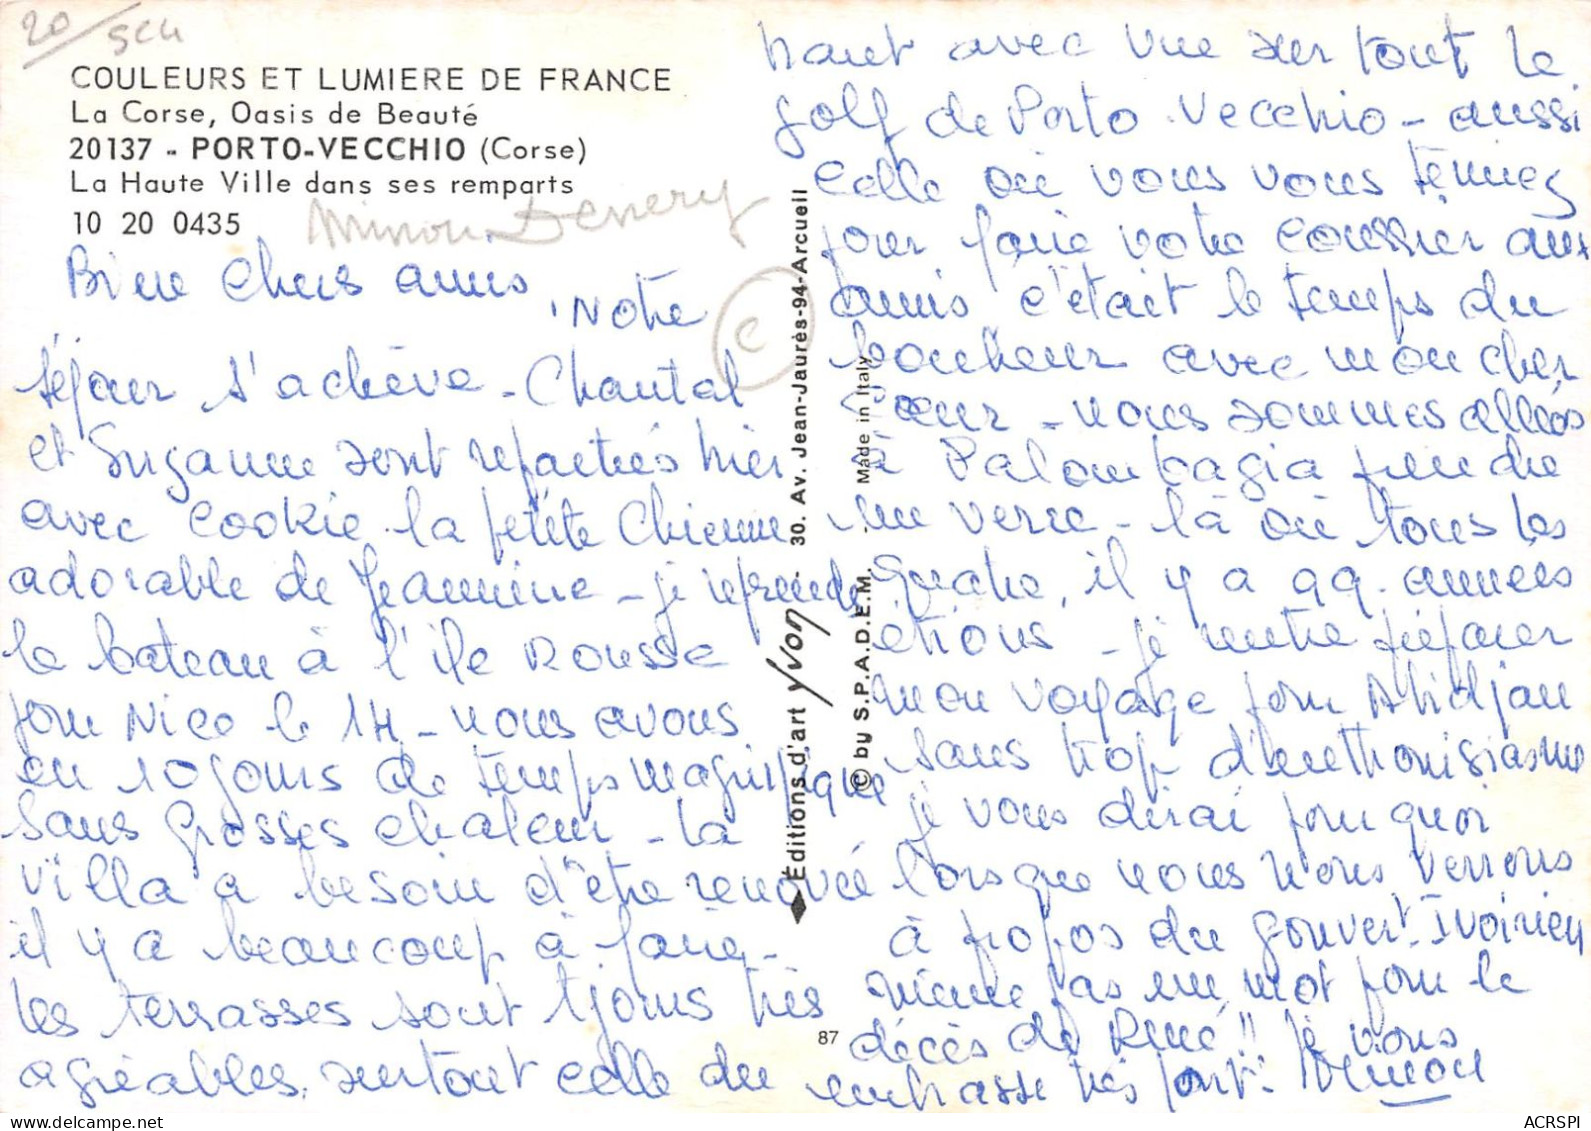 20/SCH
COULEURS ET LUMIERE DE FRANCE
La Corse, Oasis de Beauté
20137 - PORTO-VECCHIO (Corse)
La Haute Ville dans ses remparts
10 20 0435
Minou Dessery
C
Bien Chers amis, Notre
séjour s'achève - Chantal
et Suzanne sont reparties hier
avec Cookie la petite Chienne
adorable de Jeannine - je reprends
le bateau à l'île Rousse
pour Nice le 14 - nous avons
eu 10 jours de temps magnifique
sans grosses chaleur - La
villa a besoin d'être renovée
il y a beaucoup à faire -
les terrasses sont tjours très
agréables, surtout celle du
haut avec vue sur tout le
golf de Porto Vecchio - aussi
celle où vous vous teniez
pour faire votre coussier aux
amis c'était le temps du
bonheur avec mon cher
- nous sommes allés
à Palombagia prendre
un verre - là où tous les
quatre, il y a qq. années
étions - je rentre préparer
mon voyage pour Abidjan
sans trop d'enthousiasme
je vous dirai pourquoi
lorsque nous nous verrons
à propos du gouvert. Ivoirien
même pas un mot pour le
décès de René !! Je vous
embrasse très fort. Minou
Éditions d'art Yvon - 30. Av. Jean-Jaurès-94-Arcueil
© by S.P.A.D.E.M. - Made in Italy
87
ACRSPI